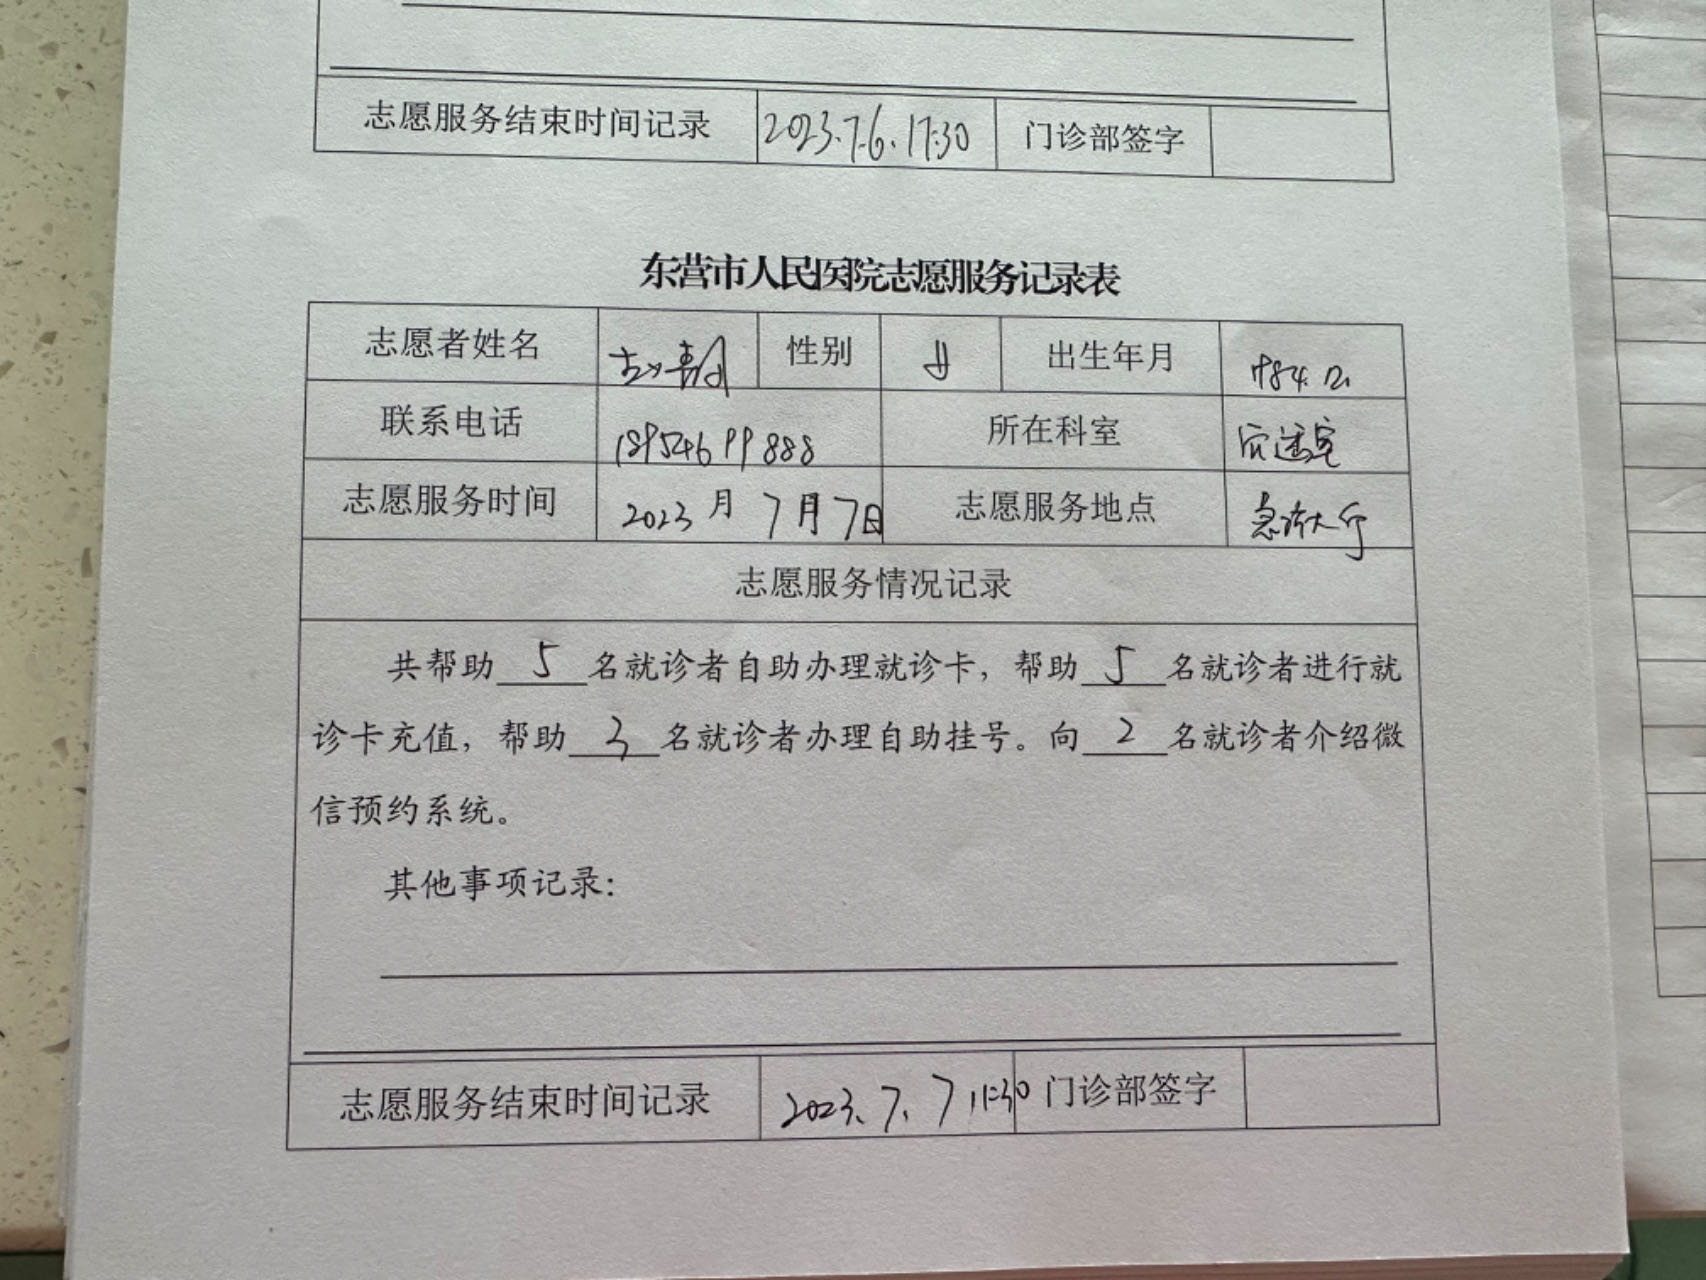 志愿服务结束时间记录 2023.7.6.17:30 门诊部签字
东营市人民医院志愿服务记录表
志愿者姓名 性别 出生年月 1984.12.
联系电话 18954699888 所在科室
志愿服务时间 2023月7月7日 志愿服务地点 急诊大厅
志愿服务情况记录
共帮助5名就诊者自助办理就诊卡，帮助5名就诊者进行就
诊卡充值，帮助3名就诊者办理自助挂号。向2名就诊者介绍微
信预约系统。
其他事项记录：
志愿服务结束时间记录 2023.7.7 11:30 门诊部签字